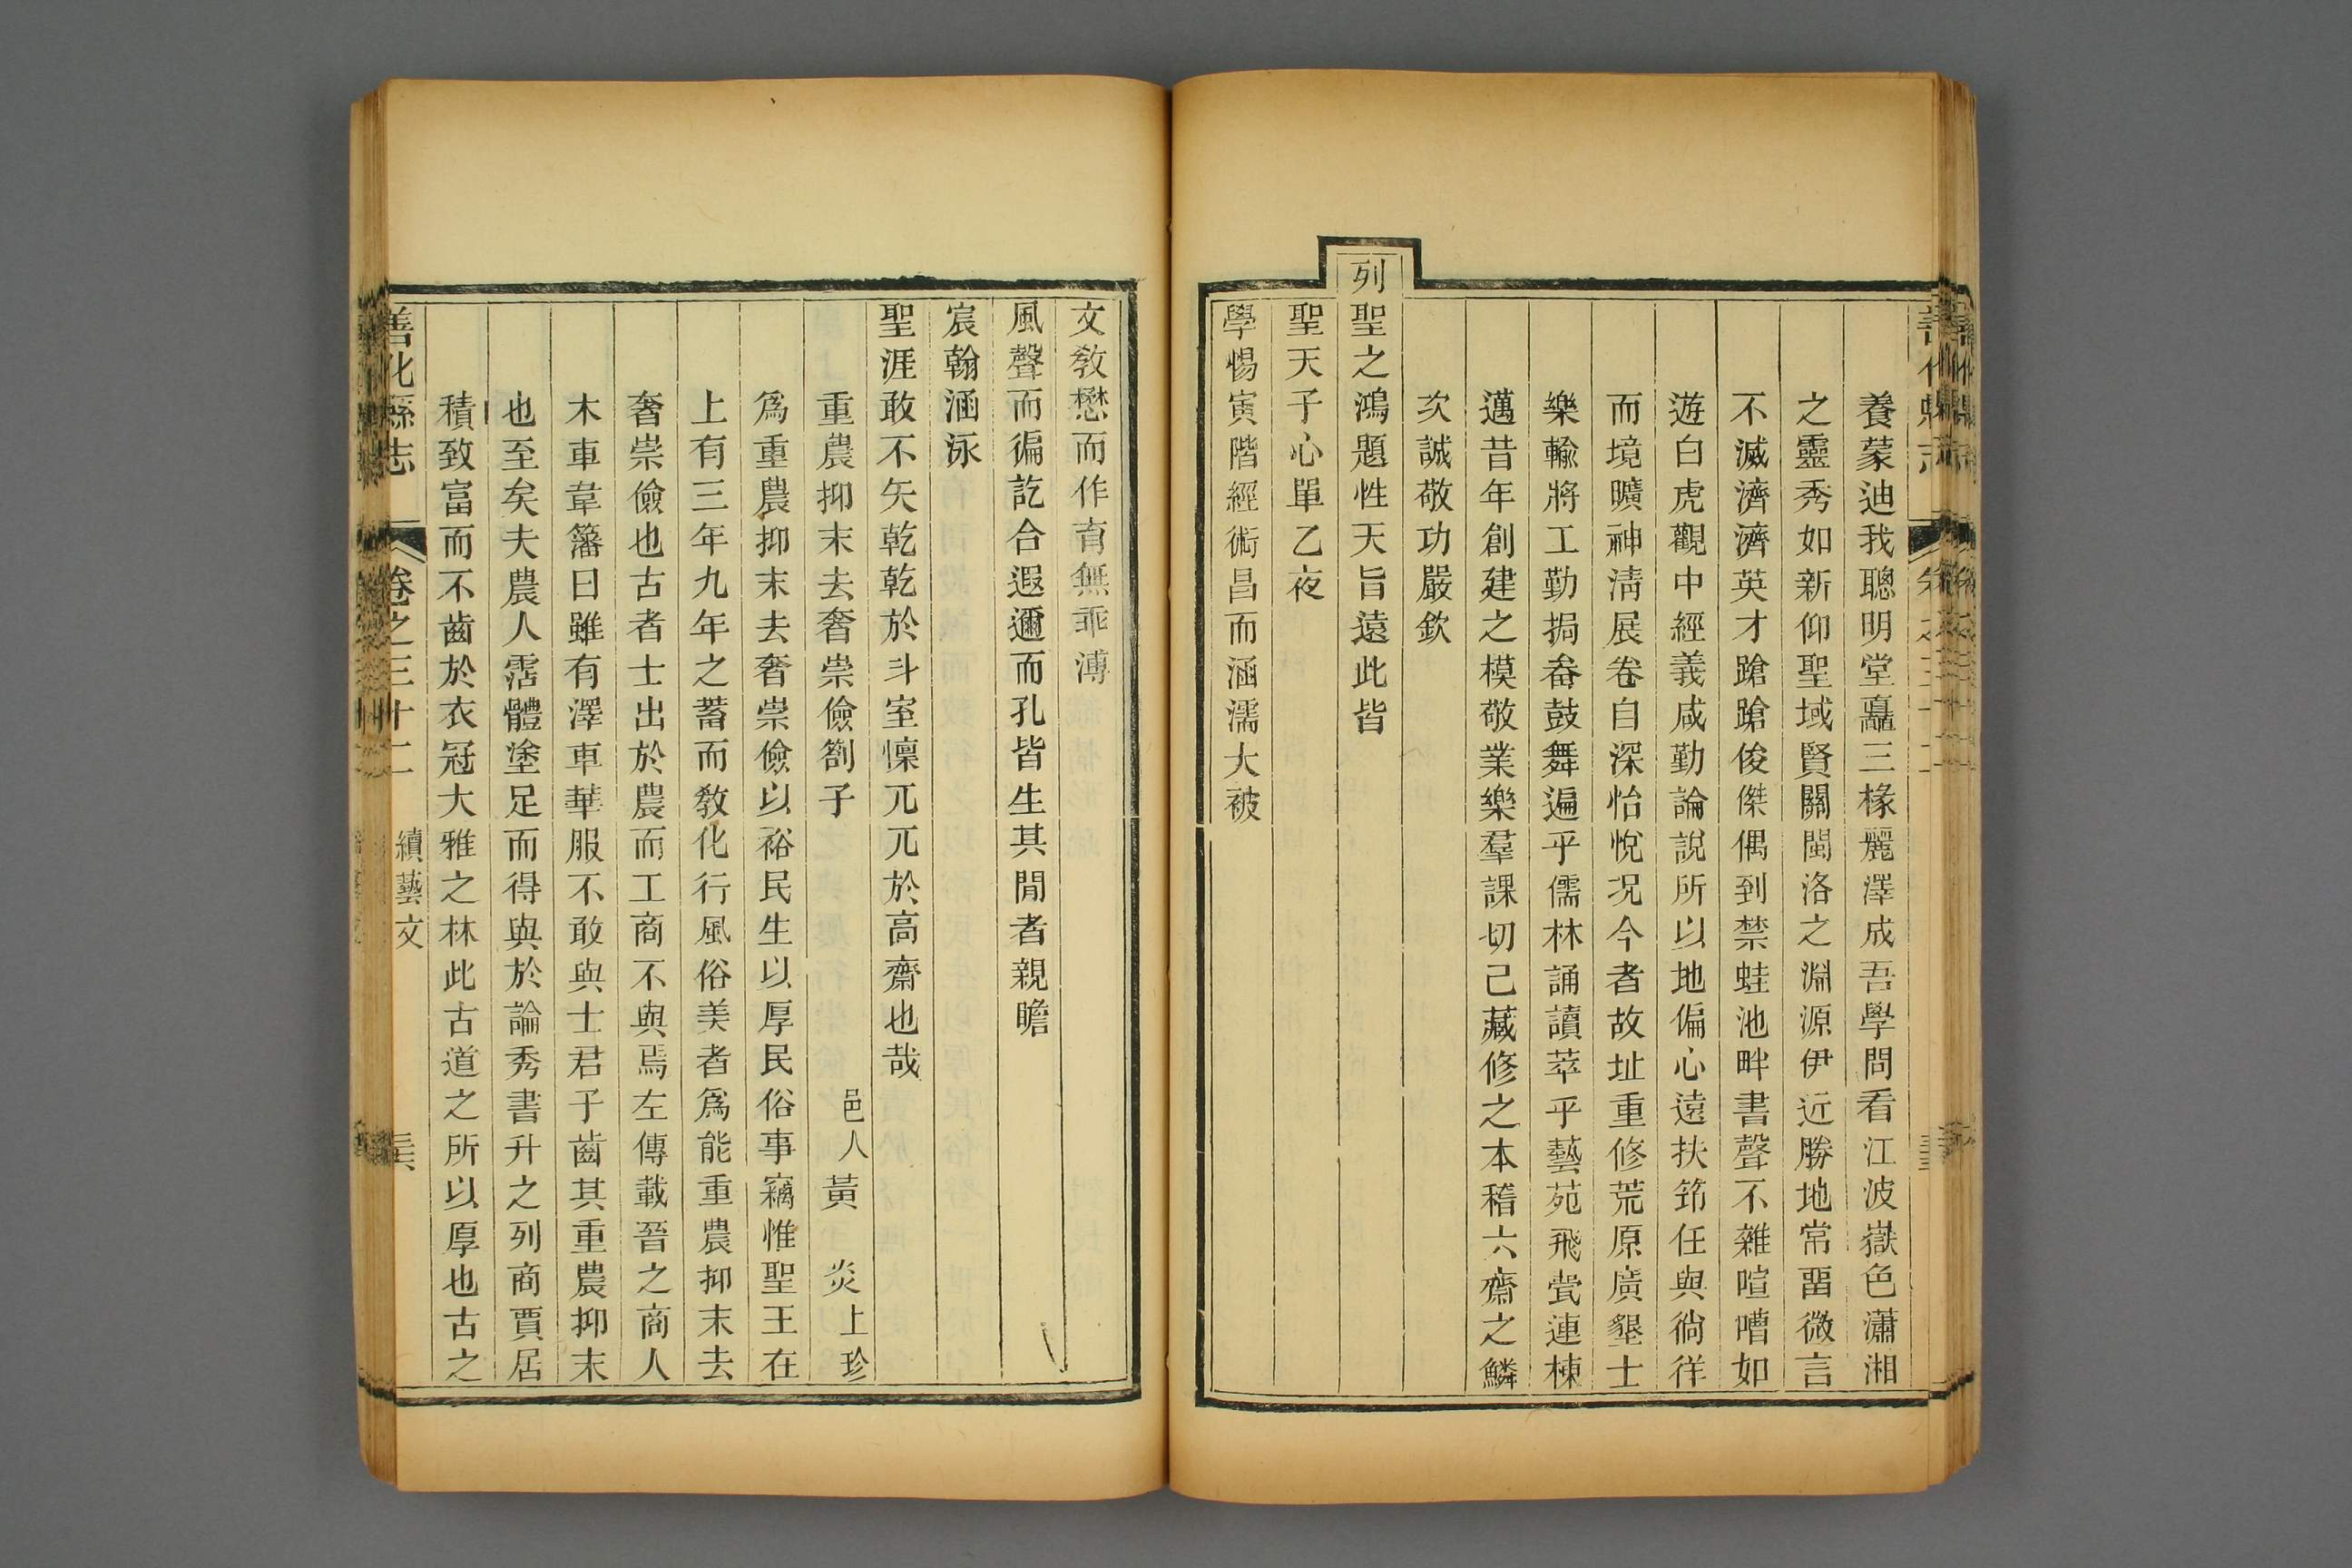 養蒙迪我聰明堂矗三椽麗澤成吾學問看江波嶽色瀟湘
之靈秀如新仰聖域賢關閩洛之淵源伊近勝地常畱微言
不滅濟濟英才蹌蹌俊傑偶到禁蛙池畔書聲不雜喧嘈如
遊白虎觀中經義咸勤論說所以地偏心遠扶筇任與徜徉
而境曠神淸展卷自深怡悅況今者故址重修荒原廣墾士
樂輸將工勤挶畚鼓舞遍乎儒林誦讀萃乎藝苑飛甍連棟
邁昔年創建之模敬業樂羣課切己藏修之本稽六齋之鱗
次誠敬功嚴欽
列聖之鴻題性天旨遠此皆
聖天子心單乙夜
學惕寅階經術昌而涵濡大被
文敎懋而作育無乖溥
風聲而徧訖合遐邇而孔皆生其閒者親瞻
宸翰涵泳
聖涯敢不矢乾乾於斗室懍兀兀於高齋也哉
重農抑末去奢崇儉劄子 邑人黃 炎上珍
爲重農抑末去奢崇儉以裕民生以厚民俗事竊惟聖王在
上有三年九年之蓄而敎化行風俗美者爲能重農抑末去
奢崇儉也古者士出於農而工商不與焉左傳載晉之商人
木車韋籓曰雖有澤車華服不敢與士君子齒其重農抑末
也至矣夫農人霑體塗足而得與於論秀書升之列商賈居
積致富而不齒於衣冠大雅之林此古道之所以厚也古之
善化縣志 卷之三十二 續藝文